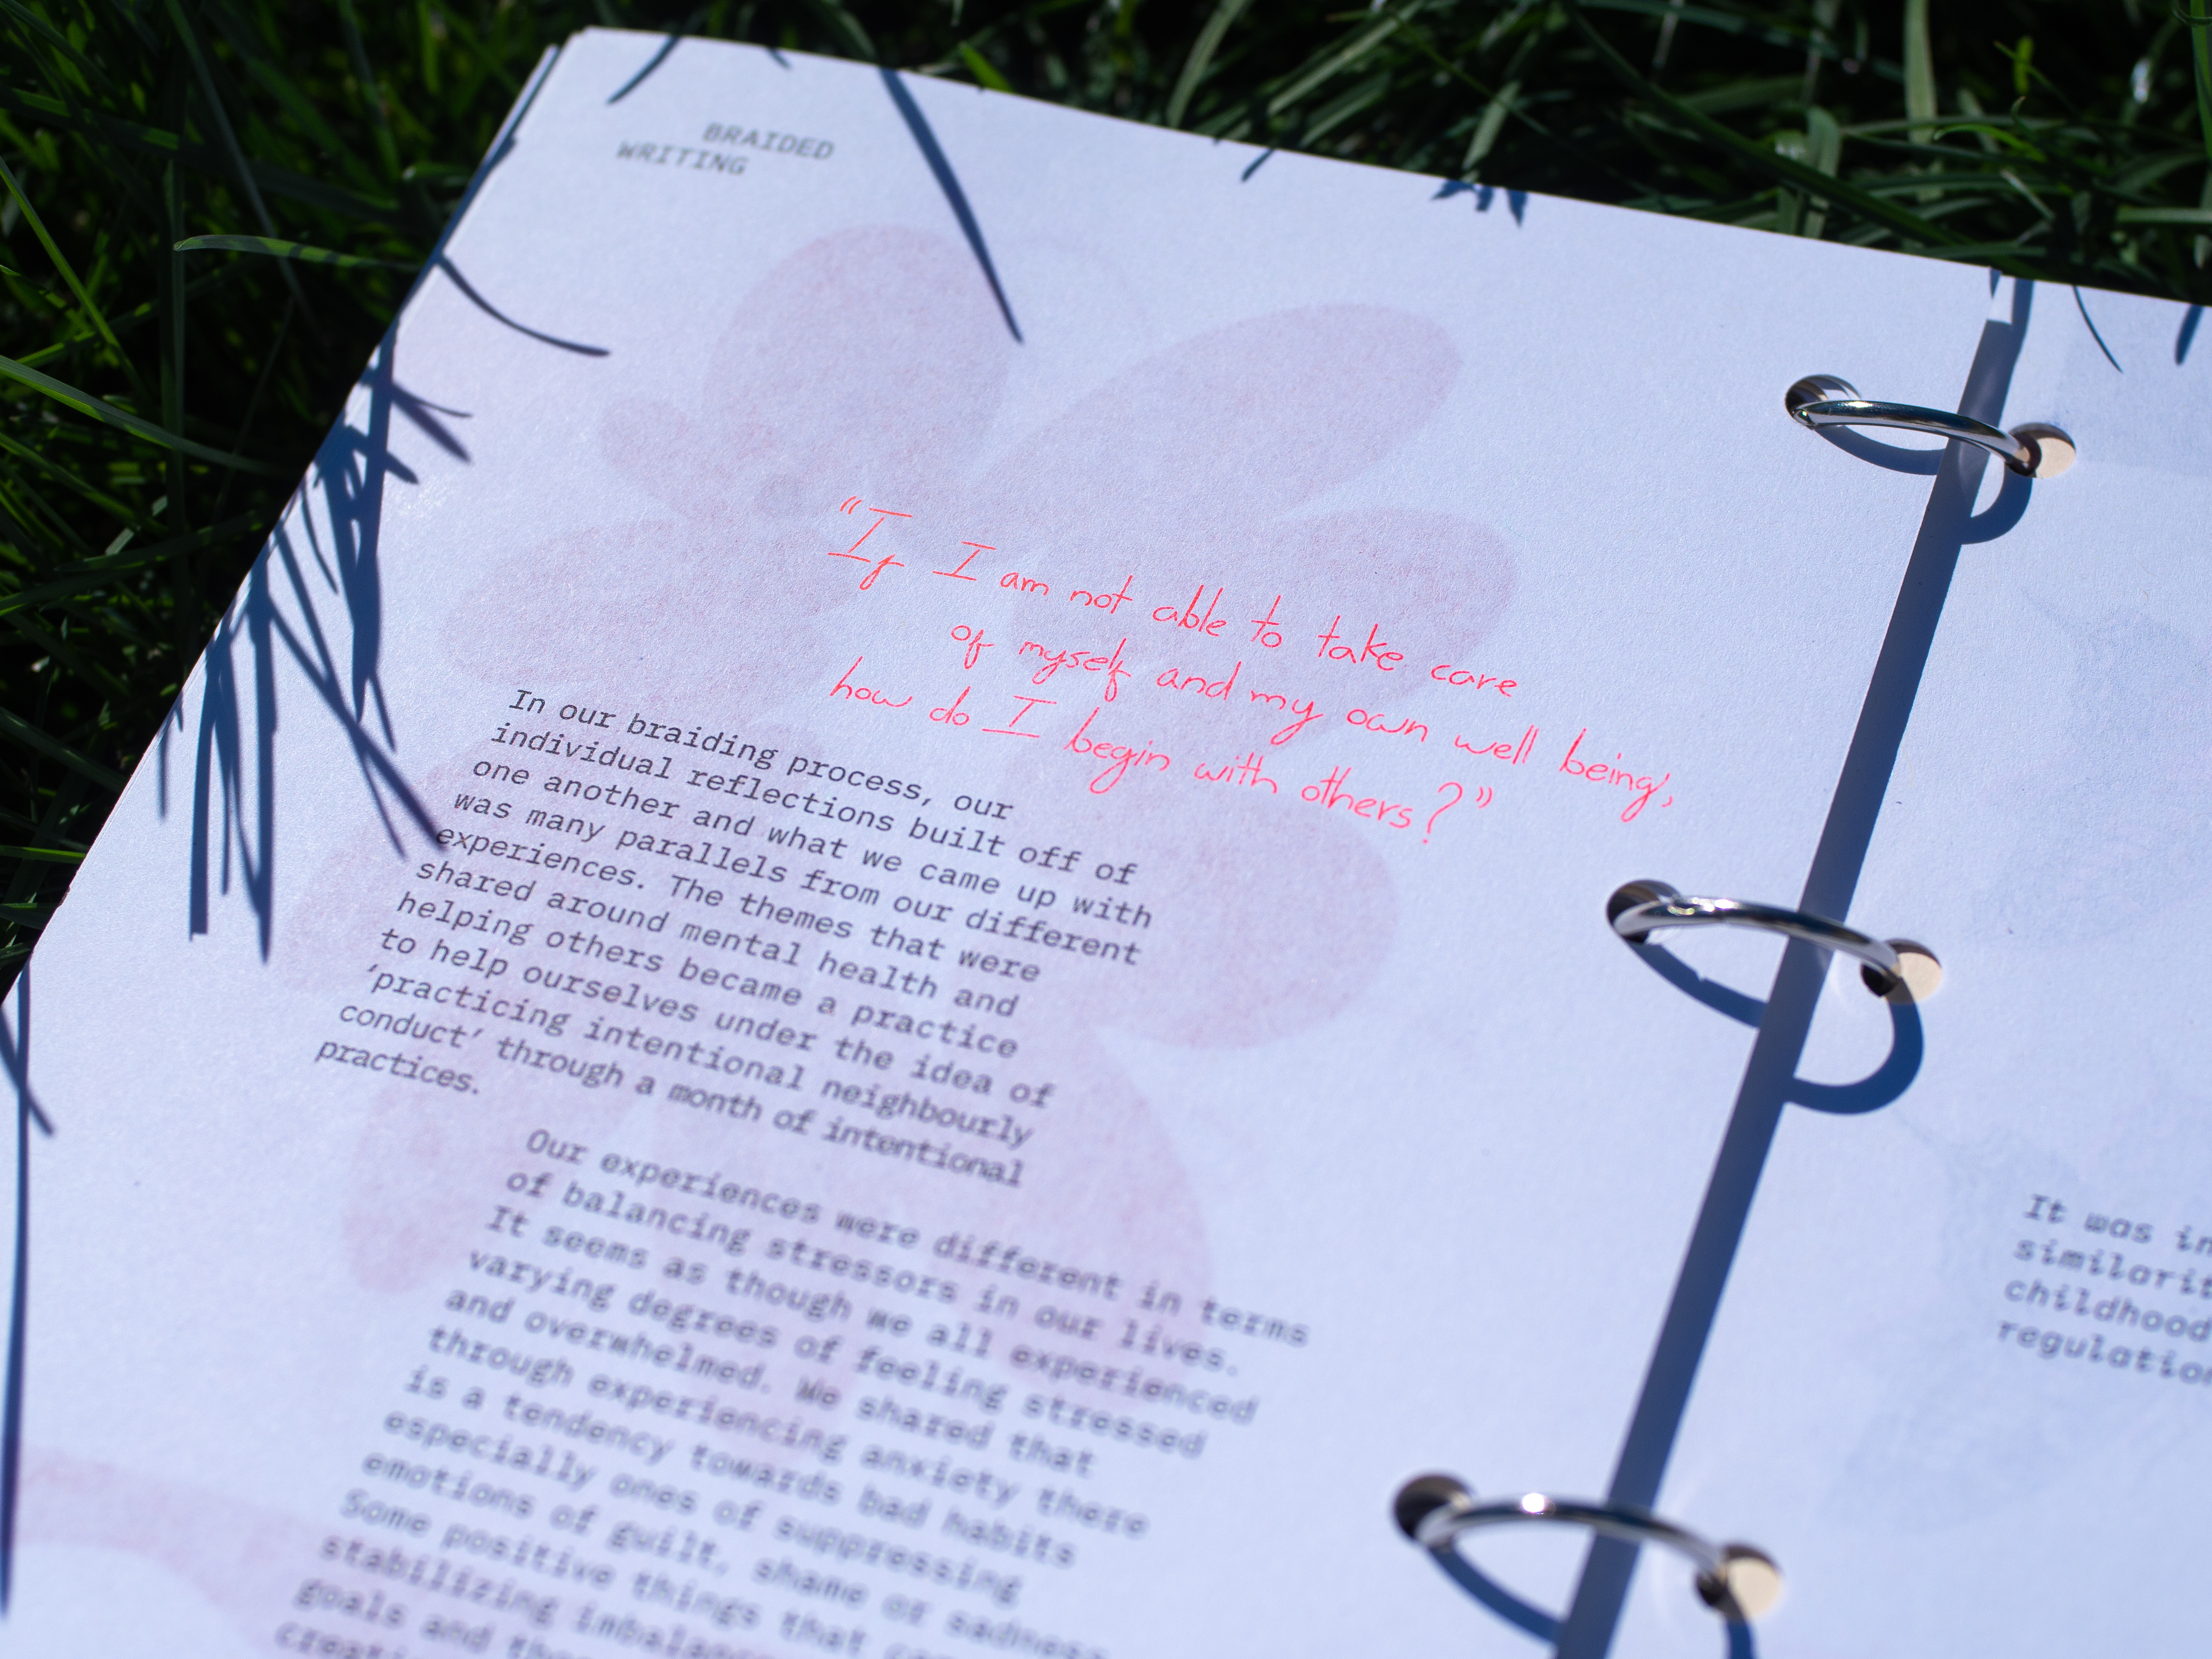 BRAIDED
WRITING
“If I am not able to take care
of myself and my own well being,
how do I begin with others?”
In our braiding process, our
individual reflections built off of
one another and what we came up with
was many parallels from our different
experiences. The themes that were
shared around mental health and
helping others became a practice
to help ourselves under the idea of
‘practicing intentional neighbourly
conduct’ through a month of intentional
practices.
Our experiences were different in terms
of balancing stressors in our lives.
It seems as though we all experienced
varying degrees of feeling stressed
and overwhelmed. We shared that
through experiencing anxiety there
is a tendency towards bad habits
especially ones of suppressing
emotions of guilt, shame or sadness
Some positive things that
stabilizing
goals and
It was
childhood